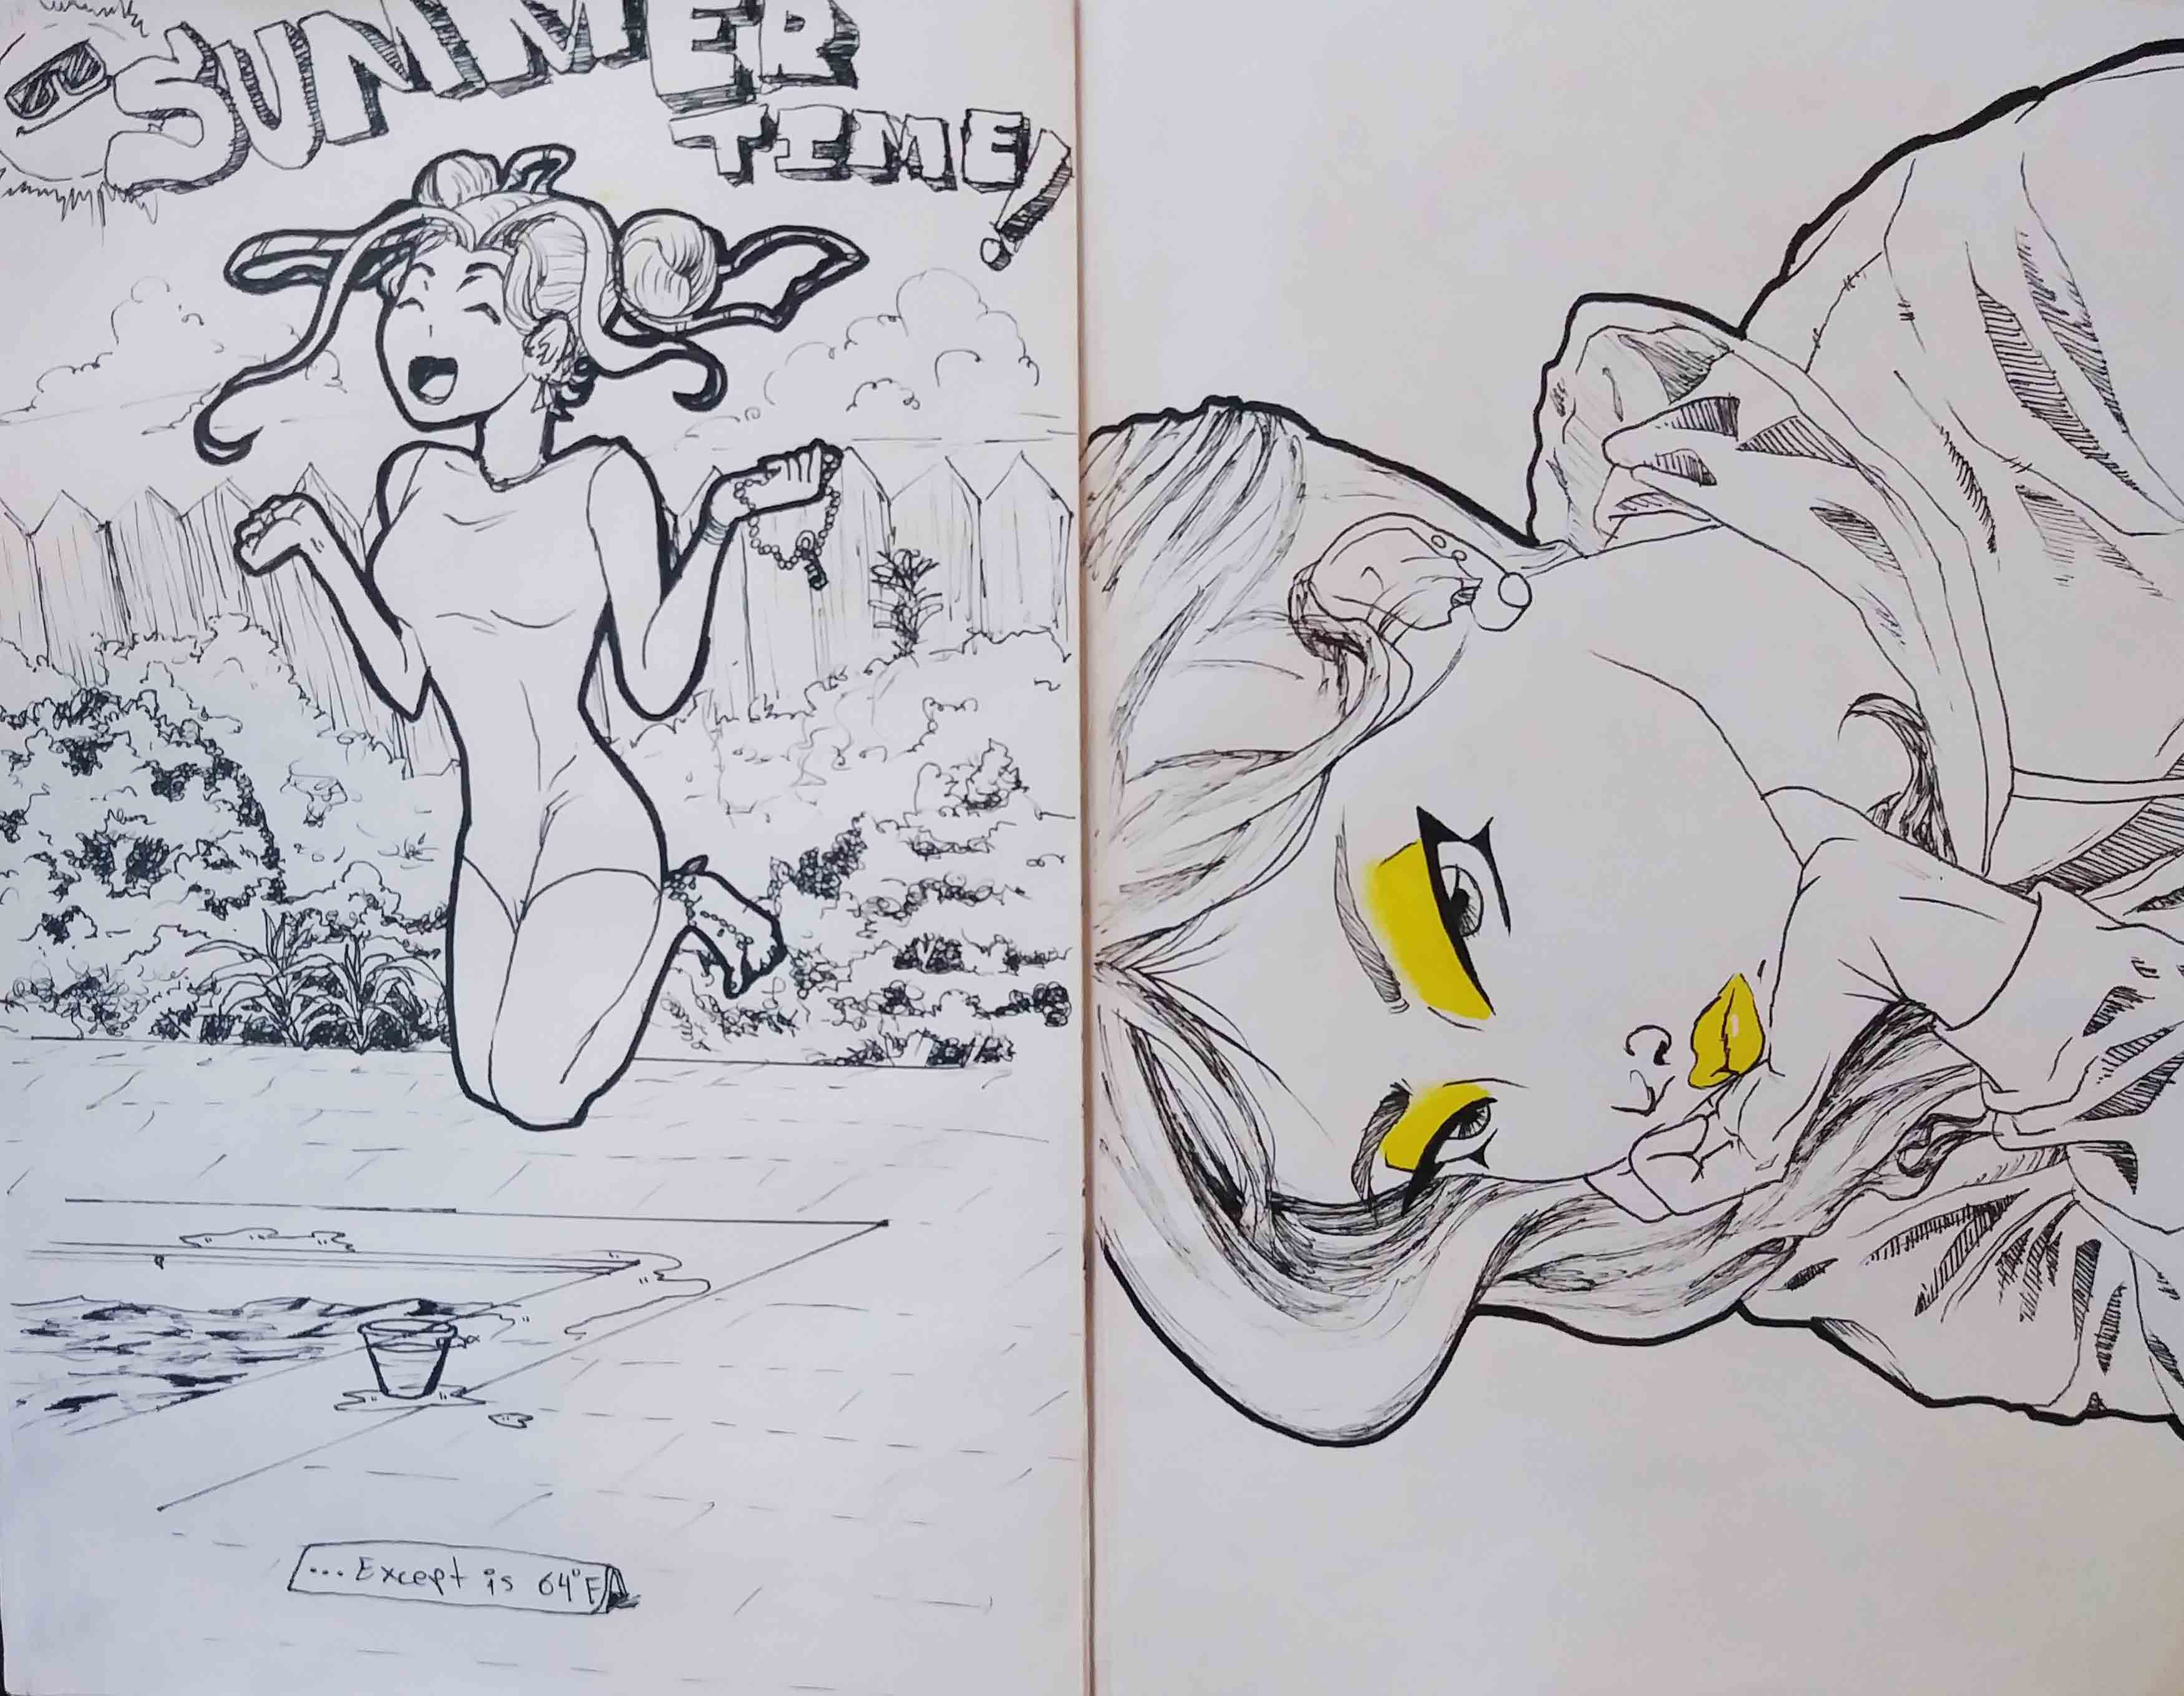 SUMMER
TIME!
...Except is 64°F